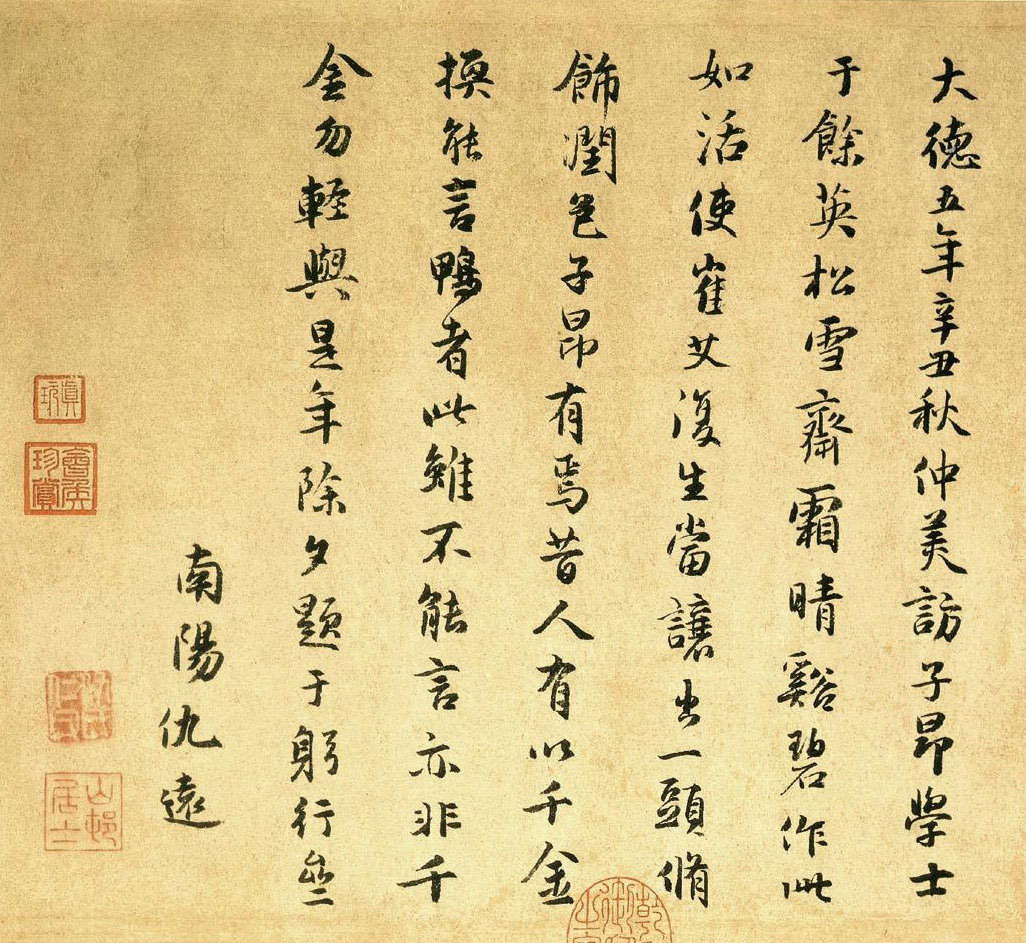 大德五年辛丑秋仲美訪子昂學士
于餘英松雪齋霜晴谿碧作此
如活使崔艾復生當讓出一頭脩
飾潤色子昂有焉昔人有以千金
換能言鴨者此雖不能言亦非千
金勿輕與是年除夕題于躬行亝
南陽仇遠
會侯珍賞
山邨居士